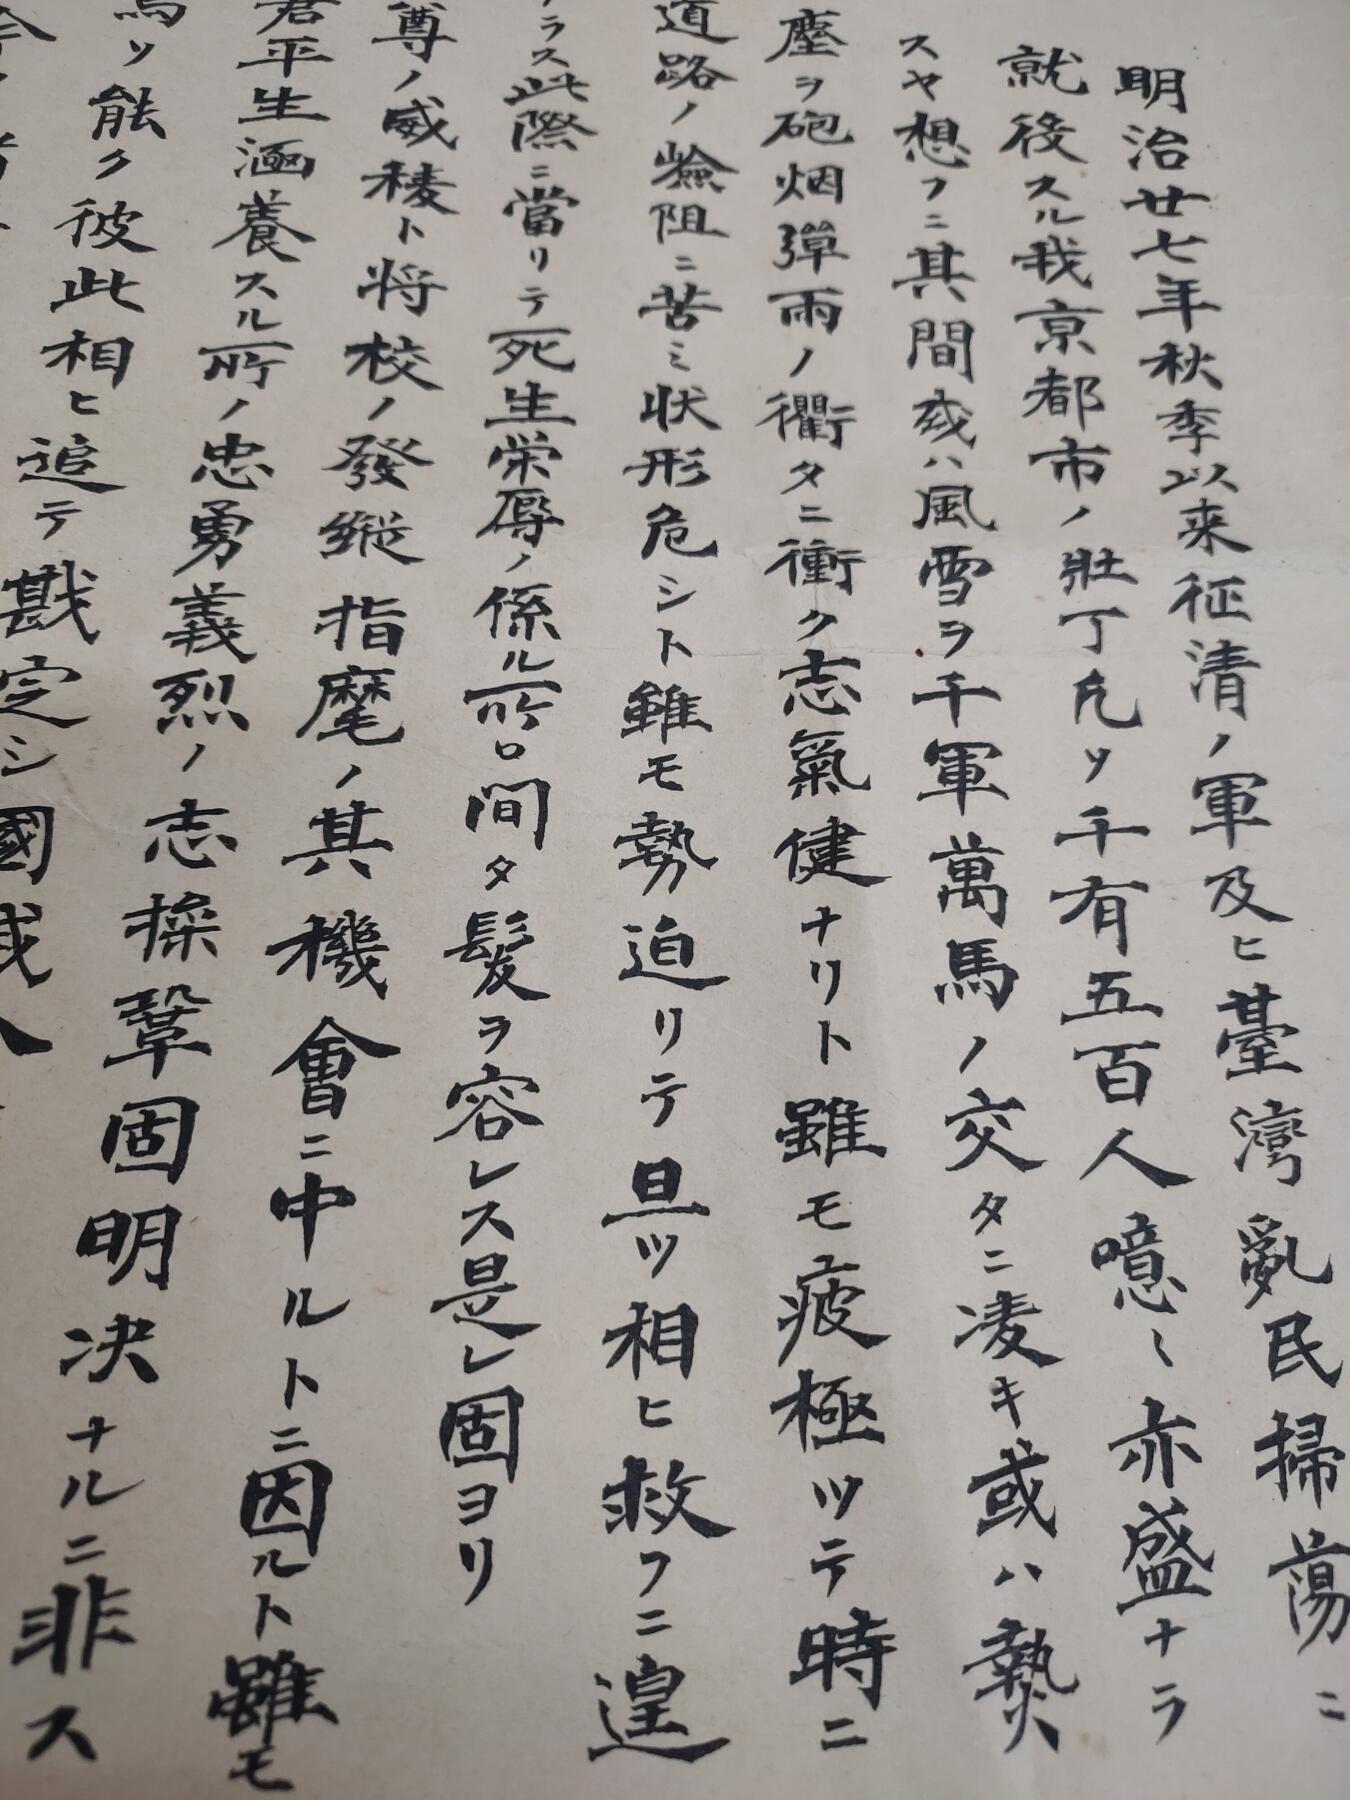 明治廿七年秋季以来征清ノ軍及ヒ臺灣亂民掃蕩ニ
就役スル我京都市ノ壮丁凡ソ千有五百人噫〻亦盛ナラ
スヤ想フニ其間或ハ風雪ヲ千軍萬馬ノ交タニ凌キ或ハ𤍠
塵ヲ砲烟彈雨ノ衢タニ衝ク志氣健ナリト雖モ疲極ツテ時ニ
道路ノ嶮阻ニ苦ミ状形危シト雖モ勢迫リテ且ツ相ヒ救フニ遑
ラス此際ニ當リテ死生栄辱ノ係ル所ロ間タ髪ヲ容レス是レ固ヨリ
尊ノ威稜ト将校ノ發縦指麾ノ其機會ニ中ルトニ因ルト雖モ
君平生涵養スル所ノ忠勇義烈ノ志操鞏固明决ナルニ非ス
ソ能ク彼此相ヒ追テ戡定シ國威